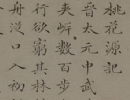 桃花源記
晉太元中武
夾岸數百步
行欲窮其林
口入初